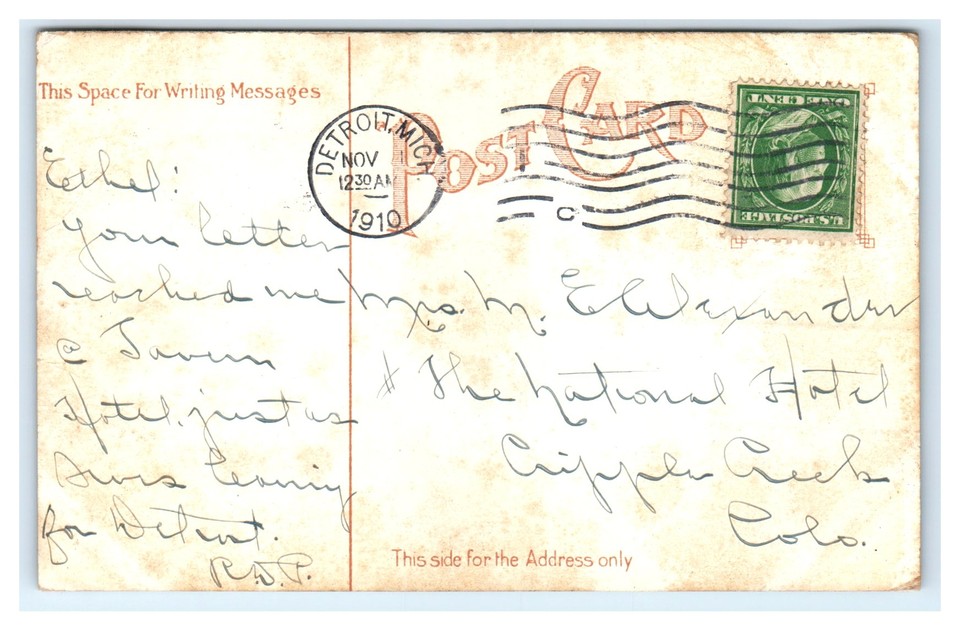 This Space For Writing Messages
POST CARD
DETROIT, MICH.
NOV
12 30 AM
1910
C
ONE CENT
U.S. POSTAGE
Ethel:
Your letter
reached me
@ Tavern
Hotel, just as
I was leaving
for Detroit.
R.D.P.
Mrs. M. E. Alexander
The National Hotel
Cripple Creek
Colo.
This side for the Address only